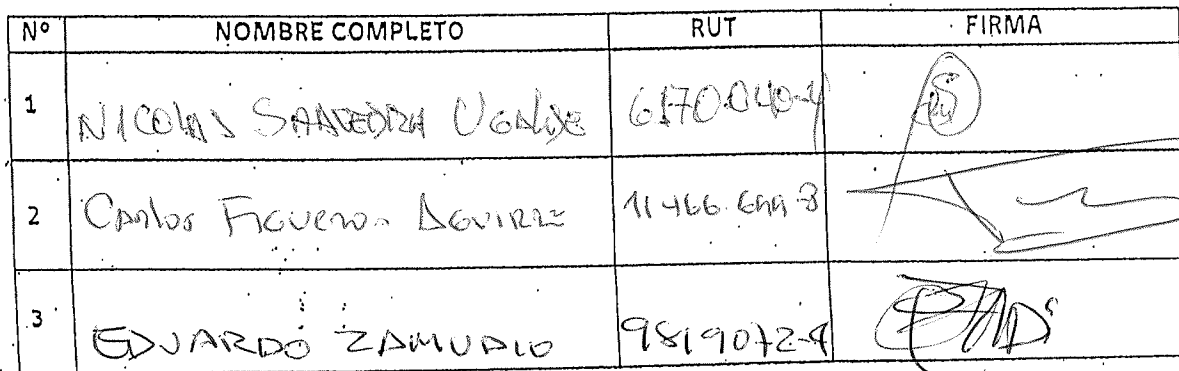 Nº NOMBRE COMPLETO RUT FIRMA
1 NICOLAS SAAVEDRA UGALDE 6170.040-4
2 Carlos Figueroa Aguirre 11466.
3 EDUARDO ZAMUDIO 9819072-